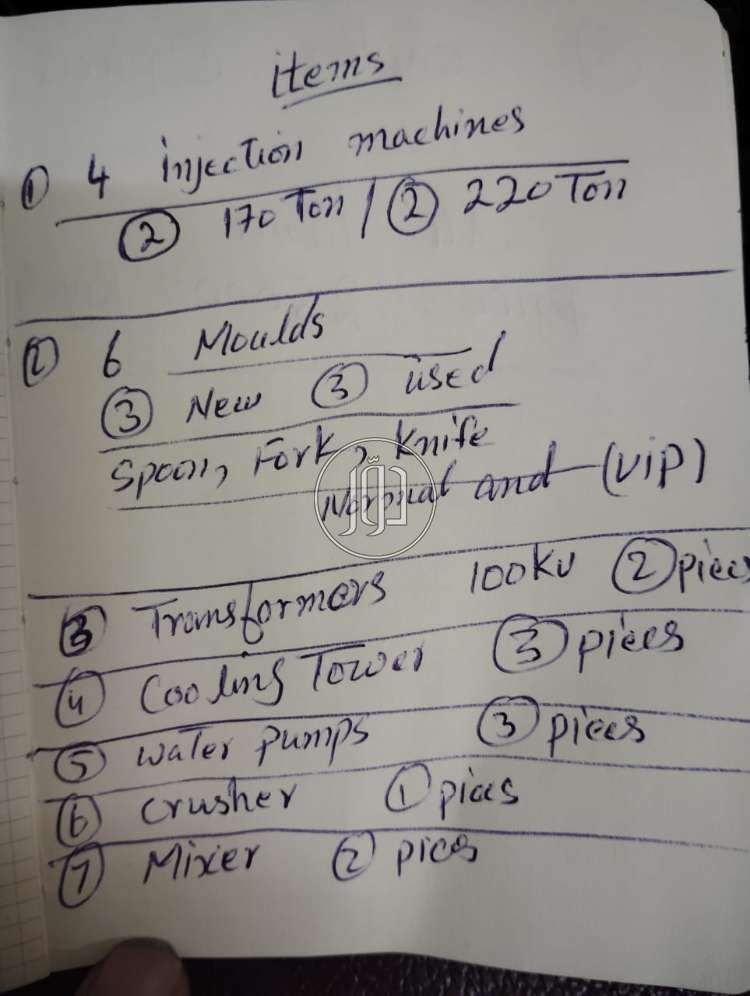 items
① 4 injection machines
② 170 Ton / ② 220 Ton
② 6 Moulds
③ New ③ used
Spoon, Fork, Knife
Normal and (ViP)
③ Transformers 100KV ② pieces
④ Cooling Tower ③ pieces
⑤ water pumps ③ pieces
⑥ crusher ① pices
⑦ Mixer ② pices